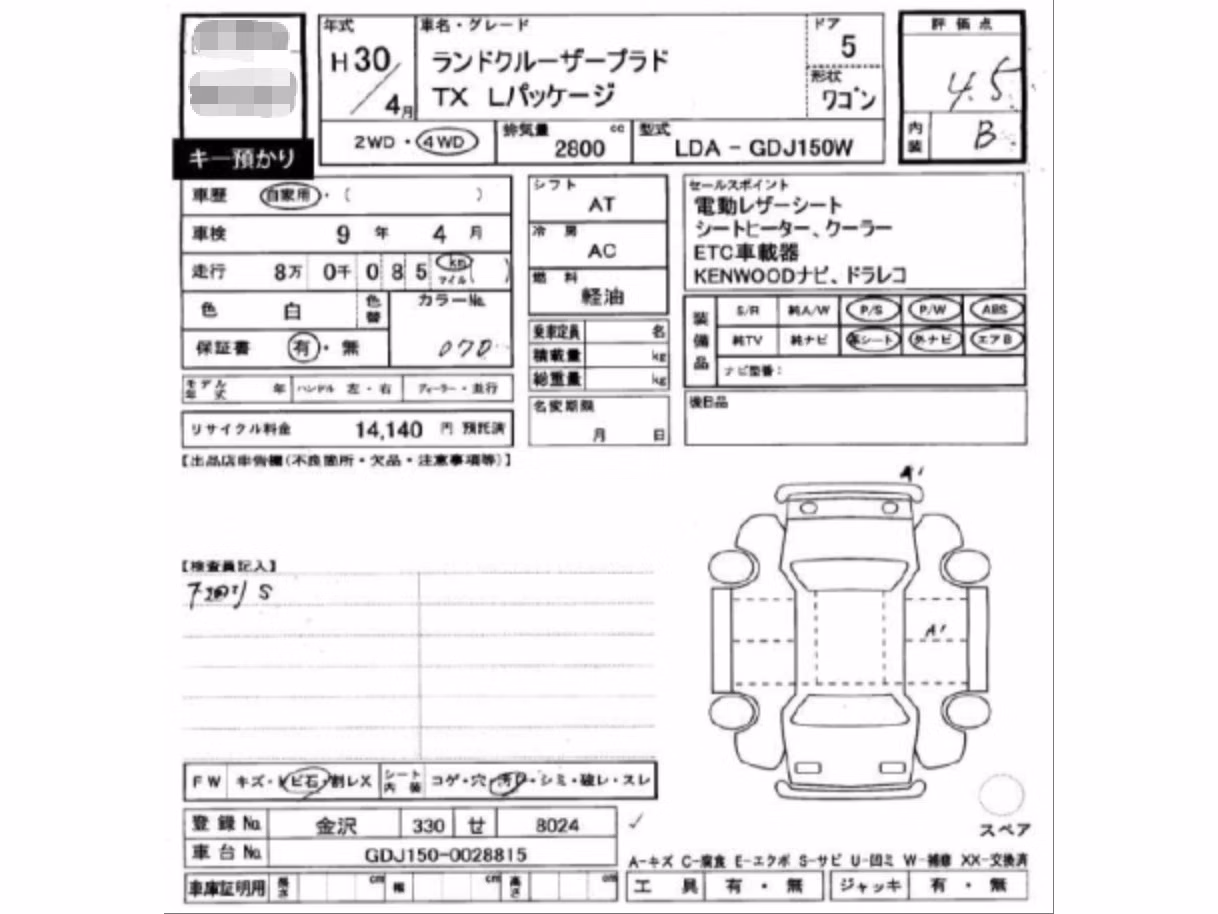 年式
H30/4月
車名・グレード
ランドクルーザープラド
TX Lパッケージ
ドア
5
形状
ワゴン
評価点
4.5
内装 B
キー預かり
2WD・4WD
排気量 2800 cc
型式 LDA - GDJ150W
車歴 自家用・( )
車検 9年 4月
走行 8万 0千 0 8 5 km マイル ( )
色 白 色替
カラーNo. 070
保証書 有・無
モデル年式 年 ハンドル 左・右 ディーラー・並行
リサイクル料金 14,140 円 預託済
シフト
AT
冷房
AC
燃料
軽油
乗車定員 名
積載量 kg
総重量 kg
名変期限
月 日
セールスポイント
電動レザーシート
シートヒーター、クーラー
ETC車載器
KENWOODナビ、ドラレコ
装備品
S/R 純A/W P/S P/W ABS
純TV 純ナビ 革シート 外ナビ エアB
ナビ型番:
後日品
【出品店申告欄(不良箇所・欠品・注意事項等)】
【検査員記入】
S
A1
A1
FW キズ・トビ石・割レX シート内装 コゲ・穴・汚レ・シミ・破レ・スレ
登録No. 金沢 330 せ 8024
車台No. GDJ150-0028815
車庫証明用 長さ cm 幅 cm 高さ cm
スペア
A-キズ C-腐食 E-エクボ S-サビ U-凹ミ W-補修 XX-交換済
工具 有・無 ジャッキ 有・無